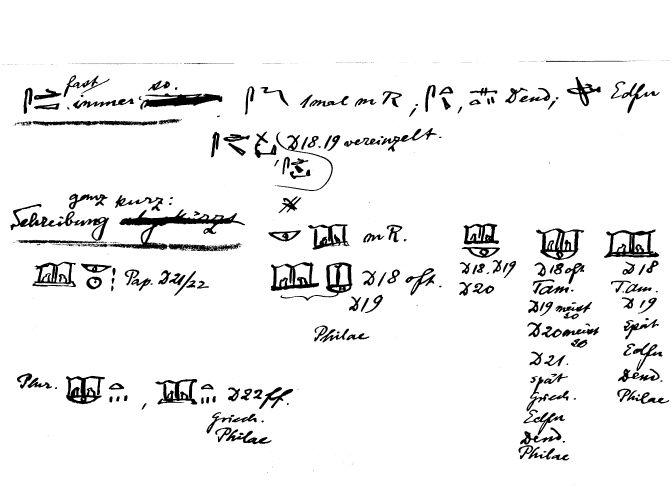 fast so.
immer. 1mal m R; , Dend; Edfu
D18.19 vereinzelt.
ganz kurz:
Schreibung
m R.
Pap. D21/22
D18 oft.
D19
Philae
D18. D19
D20
D18 oft
Tam.
D19 meist so
D20 meist so
D21.
spät
Griech.
Edfu
Dend.
Philae
D18
Tam.
D19
spät
Edfu
Dend.
Philae
Plur. , D22ff.
Griech.
Philae